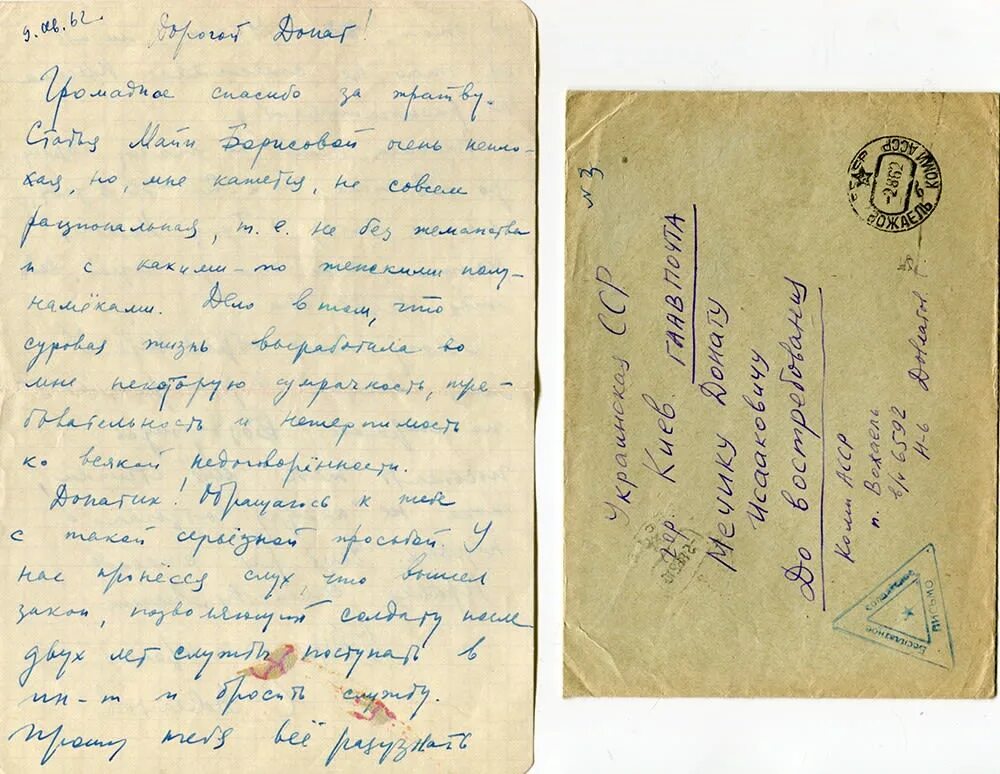 9. авг. 62 г.
Дорогой Донат!
Громадное спасибо за жратву.
Статья Майи Борисовой очень непло-
хая, но, мне кажется, не совсем
рациональная, т. е. не без жеманства
и с какими-то женскими полу-
намёками. Дело в том, что
суровая жизнь выработала во
мне некоторую сумрачность, тре-
бовательность и нетерпимость
ко всякой недоговорённости.
Донатик! Обращаюсь к тебе
с такой серьёзной просьбой У
нас пронёсся слух, что вышел
закон, позволяющий солдату после
двух лет службы поступать в
ин-т и бросить службу.
Прошу тебя всё разузнать
N 3
Украинская ССР
гор. Киев. ГЛАВПОЧТА
Мечику Донату
Исааковичу
До востребования
Коми АССР
п. Вожаель
в/ч 6592
Н-6 Довлатов
ВОЖАЕЛЬ КОМИ АССР
-2862
б
СОЛДАТСКОЕ
ПИСЬМО
БЕСПЛАТНОЕ